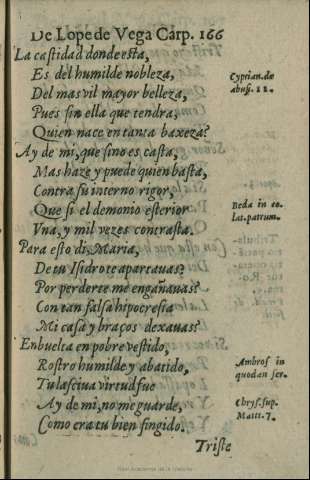 De Lope de Vega Carp. 166
La castidad donde esta,
Es del humilde nobleza,
Cyprian. de
Del mas vil mayor belleza,
abusi. 12.
Pues sin ella que tendra,
Quien nace en tanta baxeza?
Ay de mi, que sino es casta,
Mas haze y puede quien basta,
Contra su interno rigor,
Que si el demonio esterior
Beda in co
lat. patrum.
Vna, y mil vezes contrasta.
Para esto di, Maria,
De tu Isidro te apartauas?
Por perderte me engañauas?
Con tan falsa hipocresia
Mi casa y braços dexauas?
Enbuelta en pobre vestido,
Rostro humilde y abatido,
Ambros in
quodan ser.
Tu lasciua virtud fue
Ay de mi, no me guarde,
Chrys. sup.
Matt. 7.
Como era tu bien fingido.
Triste